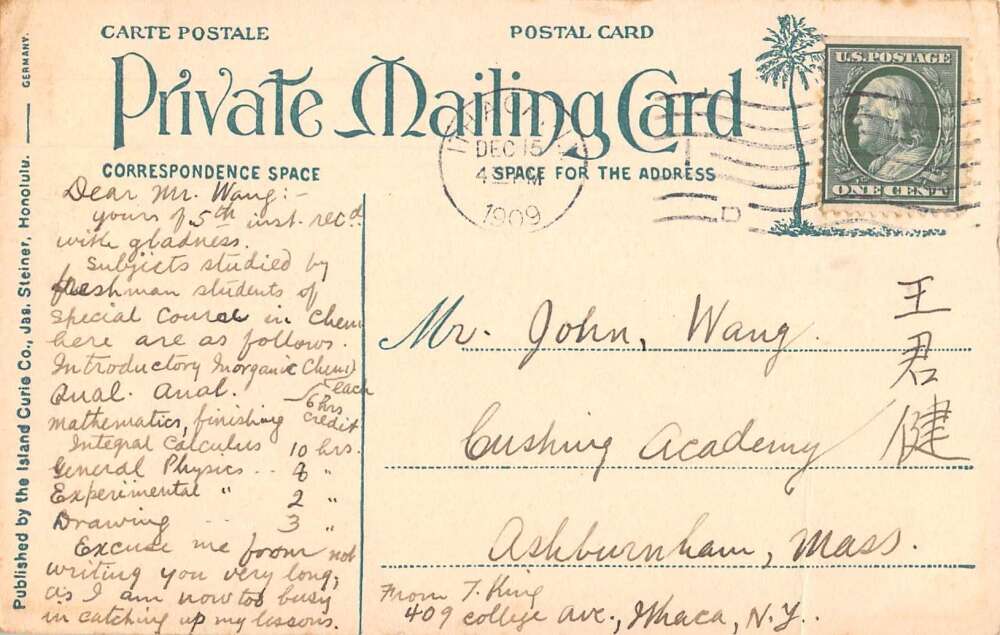 CARTE POSTALE
POSTAL CARD
Private Mailing Card
CORRESPONDENCE SPACE
SPACE FOR THE ADDRESS
U.S. POSTAGE
ONE CENT
DEC 15
4 PM
1909
D
Published by the Island Curio Co., Jas. Steiner, Honolulu. GERMANY.
Dear Mr. Wang:-
yours of 5th inst. rec'd
with gladness.
Subjects studied by
freshman students of
special course in Chem
here are as follows.
Introductory Inorganic Chem }
Qual. Anal. } each
6 hrs
credit
mathematics, finishing
Integral Calculus 10 hrs.
General Physics .. 8 "
Experimental " 2 "
Drawing ... 3 "
Excuse me from not
writing you very long,
as I am now too busy
in catching up my lessons.
Mr. John, Wang.
Cushing Academy
Ashburnham, Mass.
王君健
From T. King
409 college ave., Ithaca, N.Y..